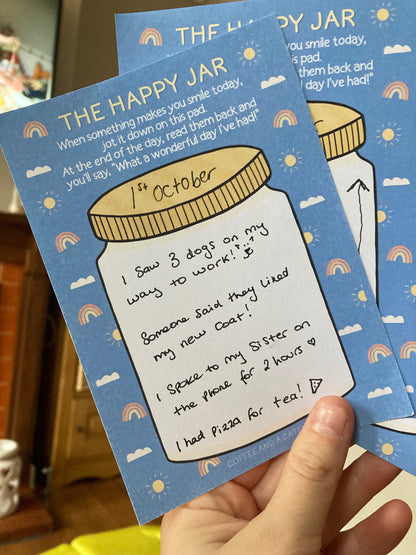 THE HAPPY JAR
When something makes you smile today,
jot it down on this pad.
At the end of the day, read them back and
you'll say, "What a wonderful day I've had!"
1st October
I saw 3 dogs on my
way to work!
Someone said they liked
my new coat!
I spoke to my sister on
the phone for 2 hours ♡
I had pizza for tea!
COFFEE AND A CA
THE HAPPY JAR
you smile today,
is pad.
them back and
I've had!"